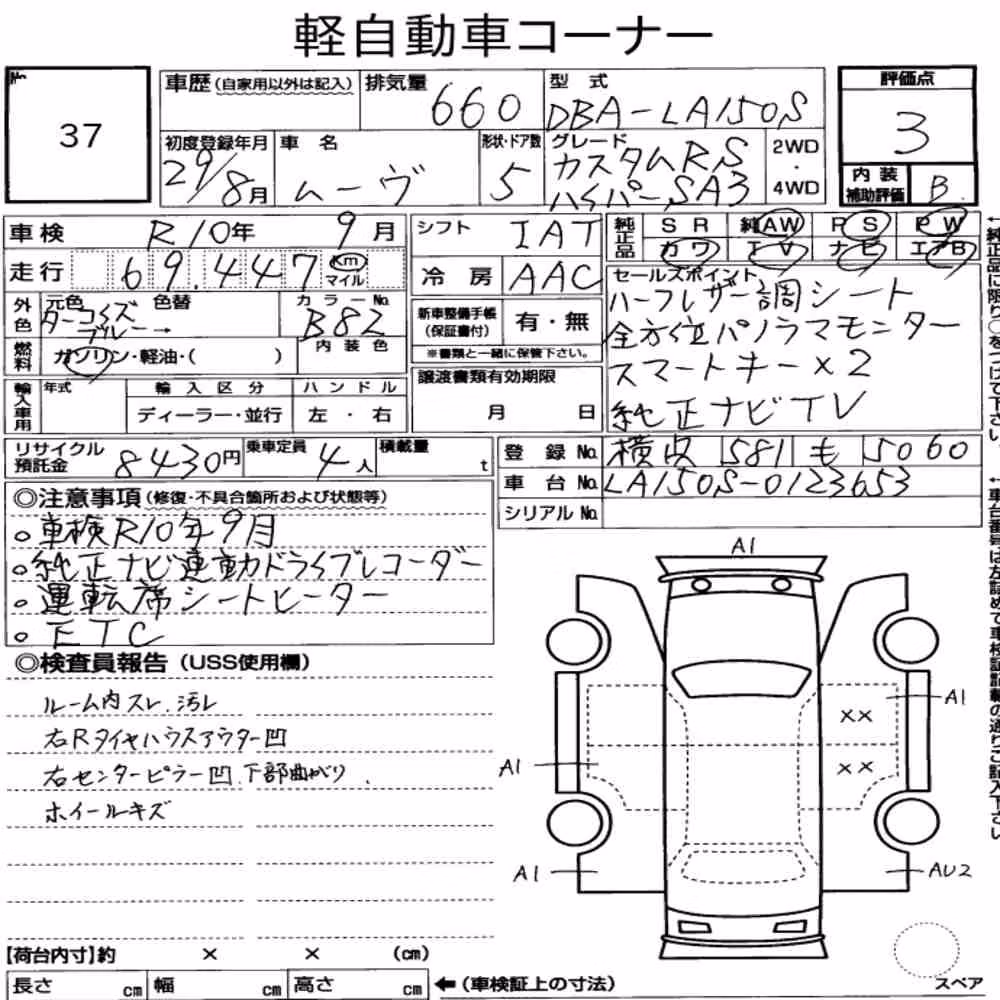 軽自動車コーナー
№
37
車歴(自家用以外は記入)
排気量
660
型式
DBA-LA150S
評価点
3
初度登録年月
29/8月
車名
ムーヴ
形状・ドア数
5
グレード
カスタムRS
ハイパーSA3
2WD
・
4WD
内装
補助評価
B
車検
R10年 9月
走行
69.447
Km
マイル
シフト
IAT
冷房
AAC
純正品
SR 純AW PS PW
カワ TV ナビ エアB
外色
元色
ターコイズ
ブルー→
色替
カラーNo.
B82
内装色
燃料
ガソリン・軽油・( )
新車整備手帳
(保証書付)
有・無
※書類と一緒に保管下さい。
セールスポイント
ハーフレザー調シート
全方位パノラマモニター
スマートキー×2
純正ナビTV
輸入車用
年式
輸入区分
ディーラー・並行
ハンドル
左・右
譲渡書類有効期限
月 日
リサイクル
預託金
8430円
乗車定員
4人
積載量
t
登録No.
横浜 581 も 5060
車台No.
LA150S-0123653
シリアルNo.
◎注意事項(修復・不具合箇所および状態等)
○車検R10年9月
○純正ナビ連動ドライブレコーダー
○運転席シートヒーター
○ETC
◎検査員報告(USS使用欄)
ルーム内スレ.汚レ
右Rタイヤハウスアウター凹
右センターピラー凹.下部曲がり.
ホイールキズ
A1
A1
××
A1
××
A1
AU2
スペア
【荷台内寸】約 × × (cm)
長さ cm 幅 cm 高さ cm
←(車検証上の寸法)
←純正品に限り○をつけて下さい。
←車台番号は左詰めで車検証記載の通りご記入下さい